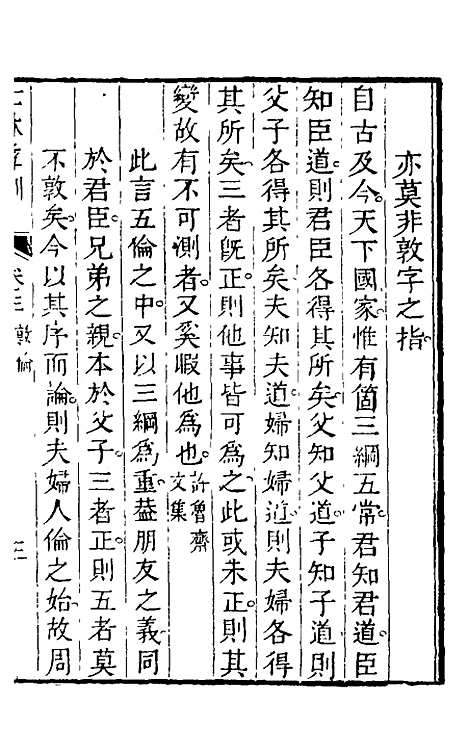 亦莫非敦字之指
自古及今天下國家惟有箇三綱五常君知君道臣
知臣道則君臣各得其所矣父知父道子知子道則
父子各得其所矣夫知夫道婦知婦道則夫婦各得
其所矣三者旣正則他事皆可爲之此或未正則其
變故有不可測者又奚暇他爲也許魯齋文集
此言五倫之中又以三綱爲重葢朋友之義同
於君臣兄弟之親本於父子三者正則五者莫
不敦矣今以其序而論則夫婦人倫之始故周
卷三 敦倫 三